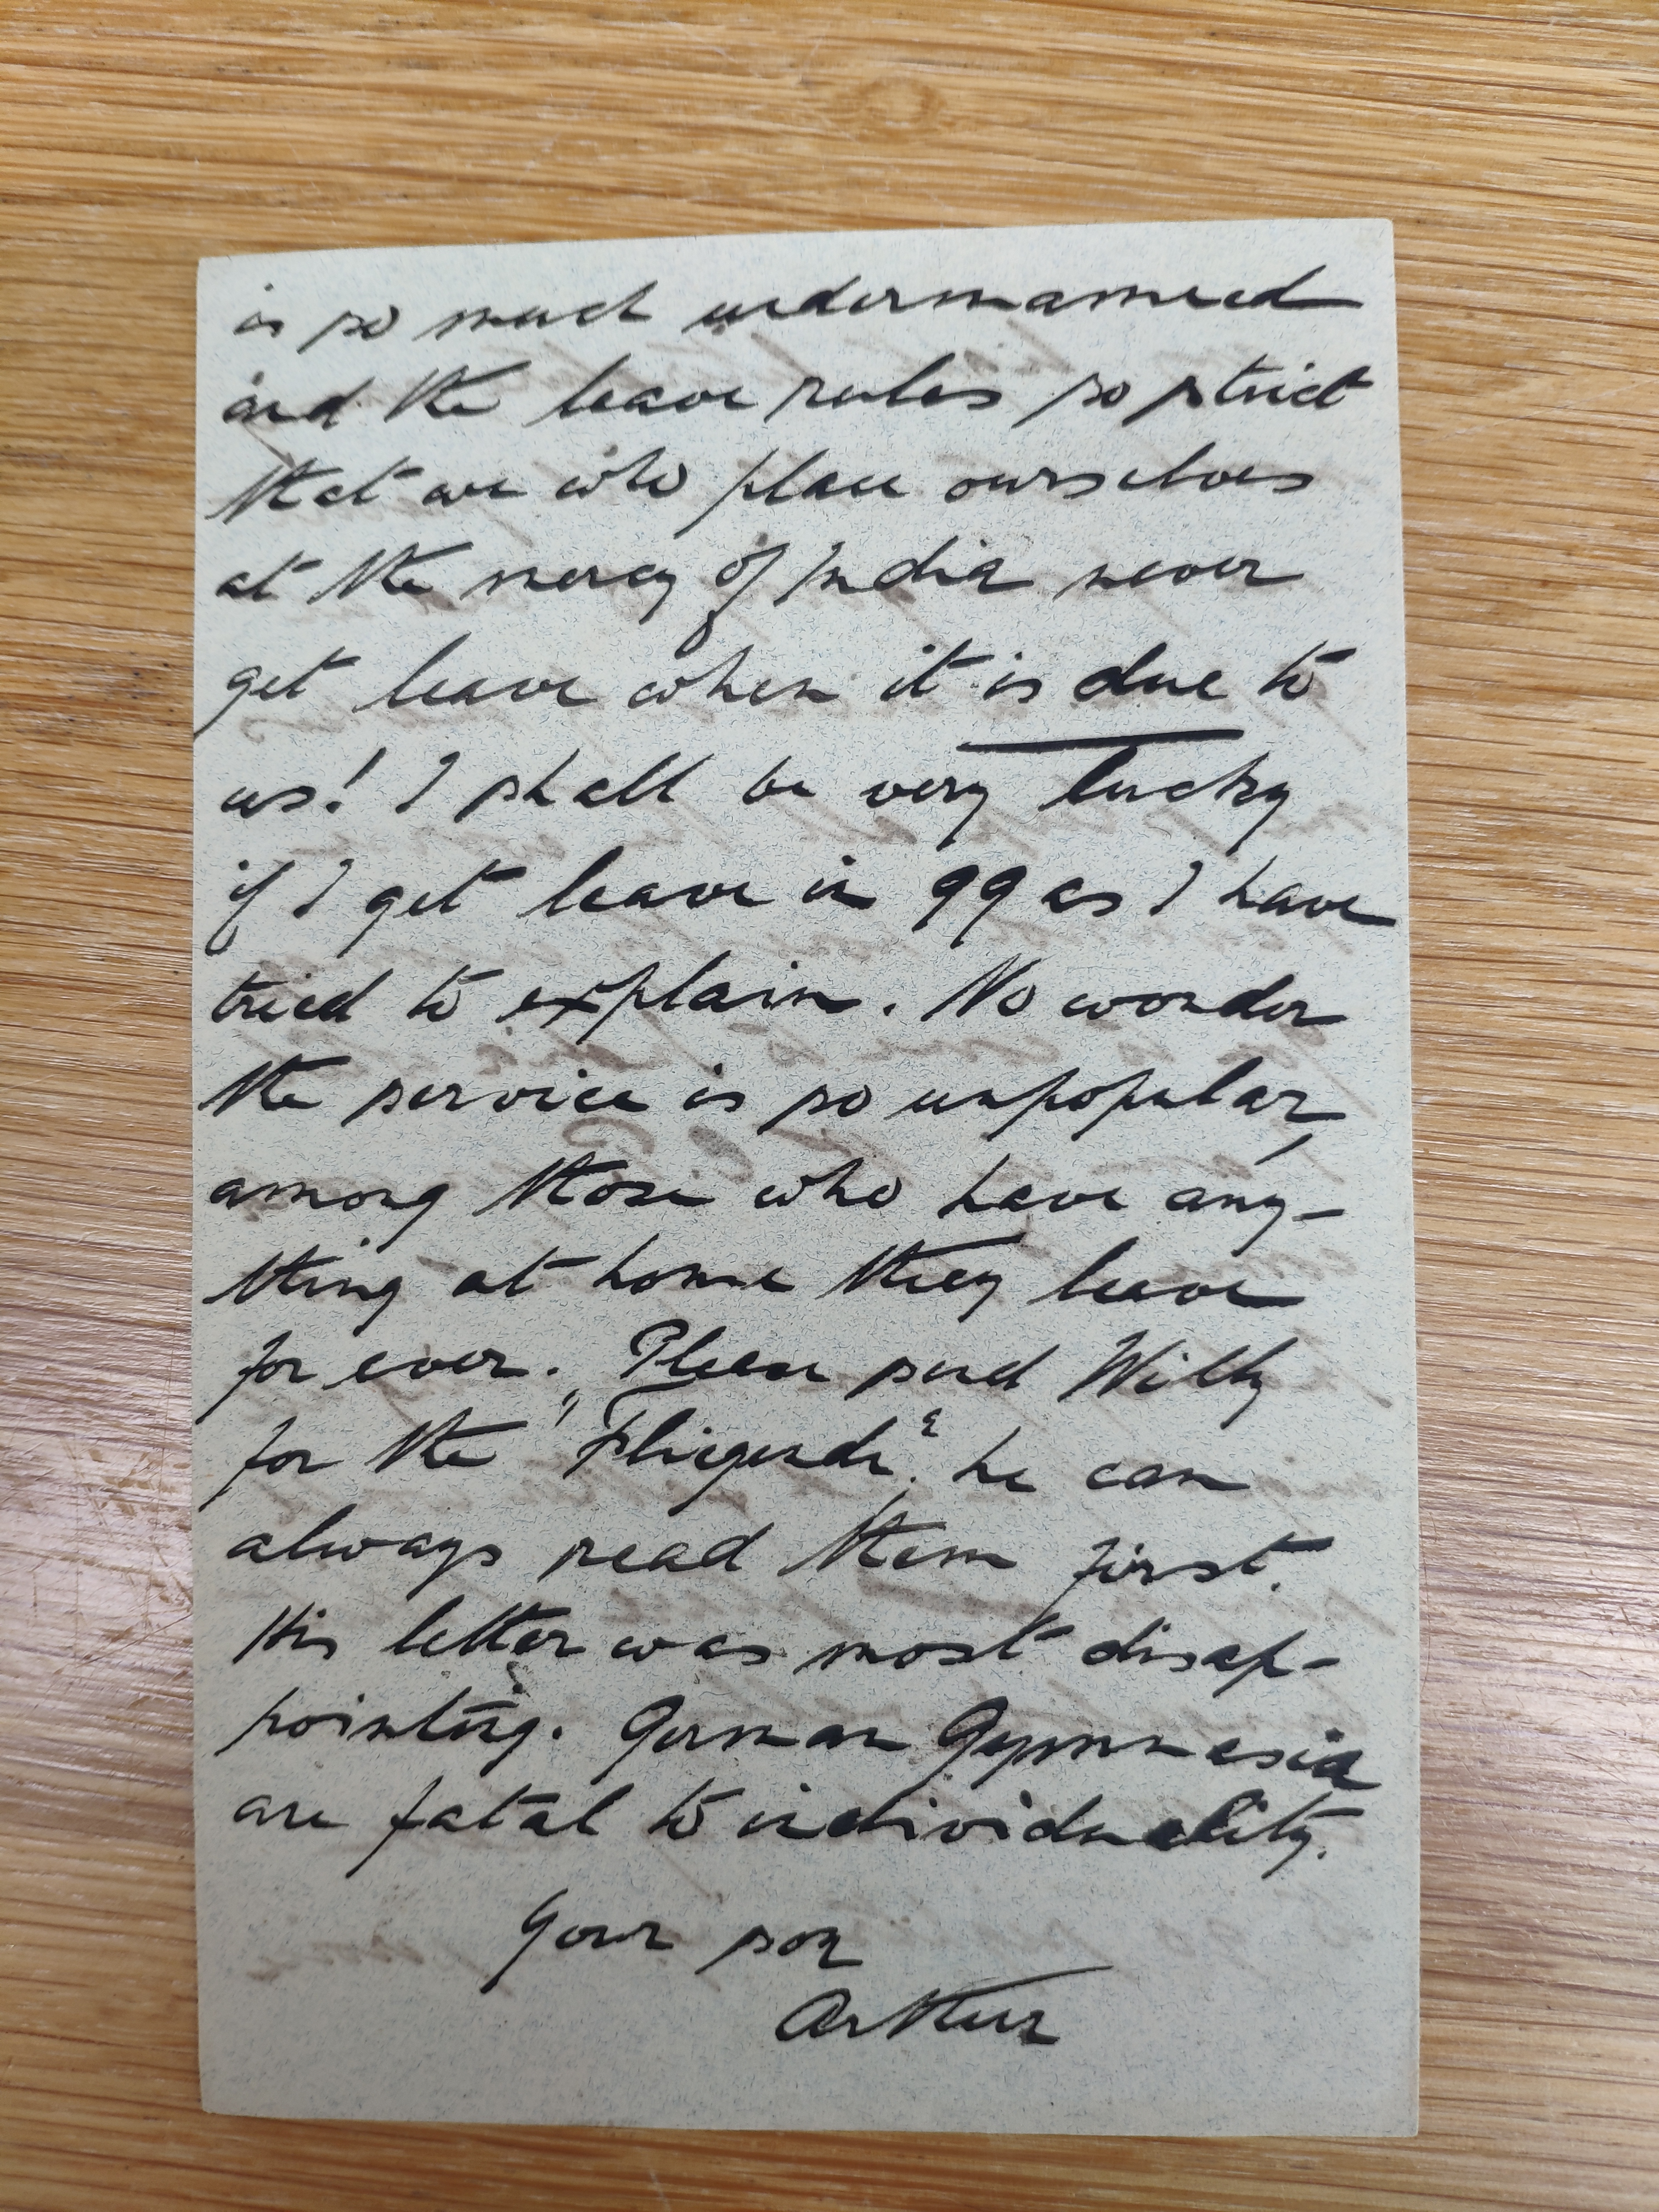 is so much undermanned
and the leave rules so strict
that we who place ourselves
at the mercy of India never
get leave when it is due to
us! I shall be very lucky
if I get leave in 99 as I have
tried to explain. No wonder
the service is so unpopular,
among those who have any-
thing at home they leave
for ever. Please send Willy
for the "Fliegende", he can
always read them first.
His letter was most disap-
pointing. German Gymnasia
are fatal to individuality.
Your son
Arthur